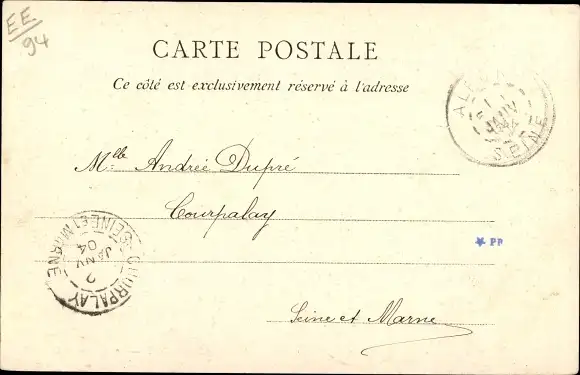 EE
94
CARTE POSTALE
Ce côté est exclusivement réservé à l'adresse
JANV
SEINE
Mlle Andrée Dupré
Courpalay
PP
COURPALAY
2
JANV
04
SEINE ET MARNE
Seine et Marne